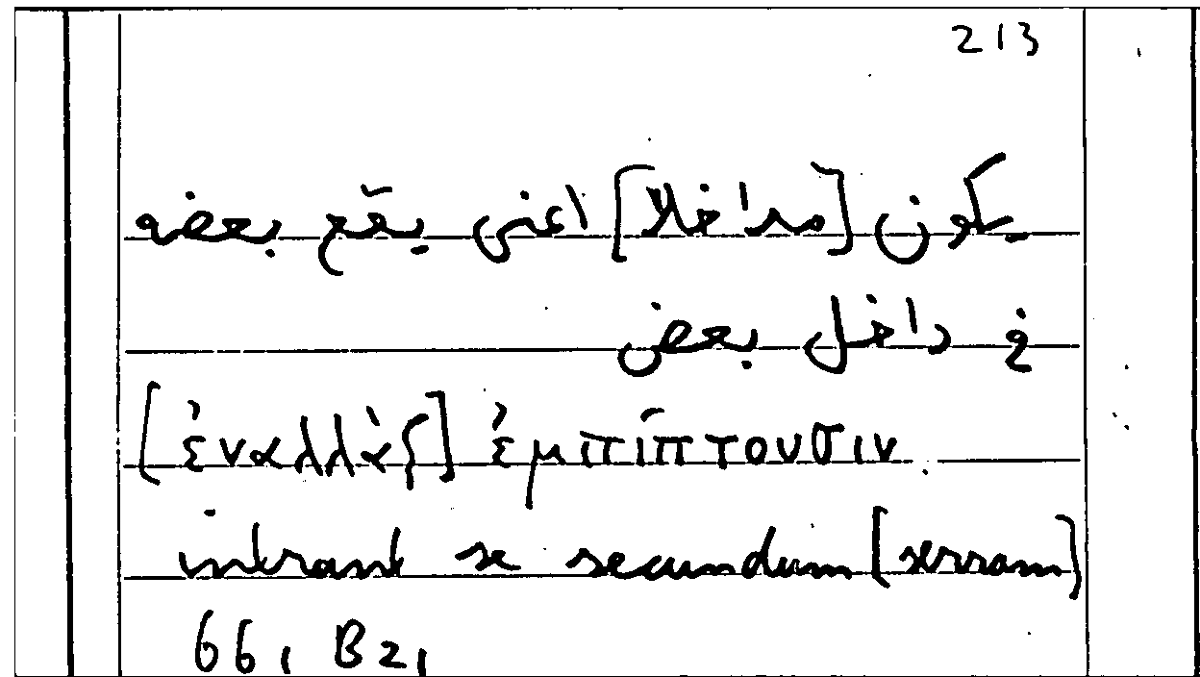 213
يكون [مداخلا] اعنى يقع بعضه
فى داخل بعض
[ἐναλλὰξ] ἐμπίπτουσιν
intrant se secundum [serram]
661 B21